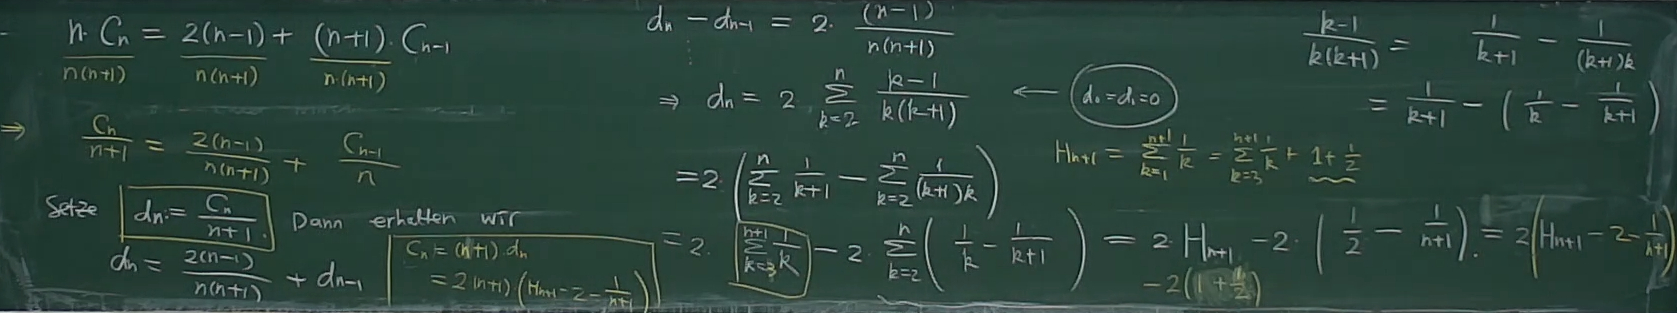 n·Cn / n(n+1) = 2(n-1) / n(n+1) + (n+1)·Cn-1 / n·(n+1)
⇒ Cn / n+1 = 2(n-1) / n(n+1) + Cn-1 / n
Setze dn := Cn / n+1. Dann erhalten wir
dn = 2(n-1) / n(n+1) + dn-1
Cn = (n+1)·dn
= 2(n+1)(Hn+1 - 2 - 1/n+1)
dn - dn-1 = 2· (n-1) / n(n+1)
⇒ dn = 2 Σ k=2 n k-1 / k(k+1) ← d0 = d1 = 0
= 2·(Σ k=2 n 1/k+1 - Σ k=2 n 1/(k+1)k)
= 2· Σ k=3 n+1 1/k - 2· Σ k=2 n (1/k - 1/k+1) = 2·Hn+1 - 2·(1/2 - 1/n+1). = 2(Hn+1 - 2 - 1/n+1)
- 2(1 + 1/2)
k-1 / k(k+1) = 1/k+1 - 1/(k+1)k
= 1/k+1 - (1/k - 1/k+1)
Hn+1 = Σ k=1 n+1 1/k = Σ k=3 n+1 1/k + 1 + 1/2